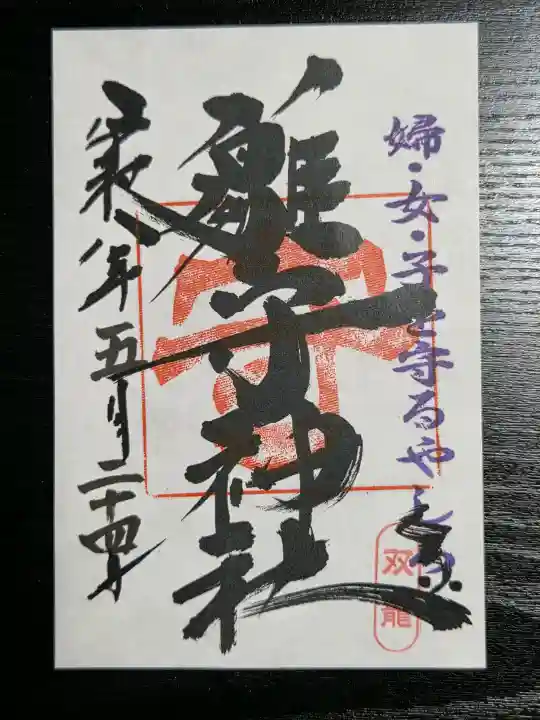 婦・女・子を守るやしろ
雛守神社
令和八年五月二十四日
双龍